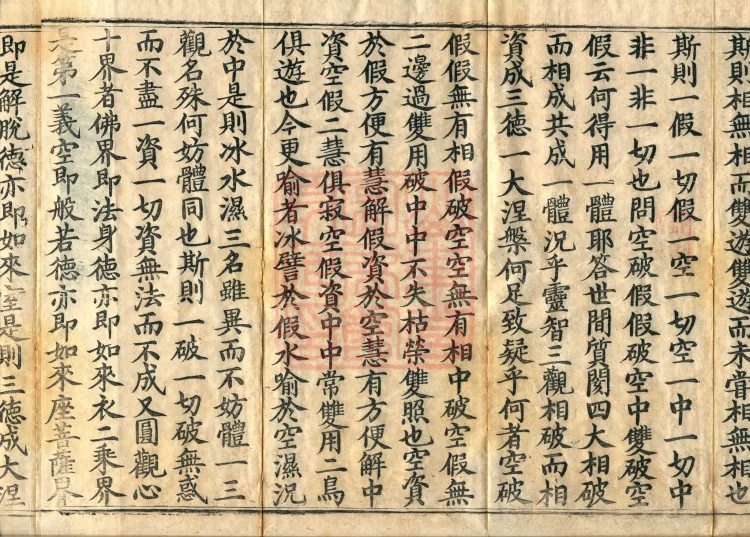 斯則相無相而雙遊雙遊而未嘗相無相也
斯則一假一切假一空一切空一中一切中
非一非一切也問空破假假破空中雙破空
假云何得用一體耶答世間質閡四大相破
而相成共成一體況乎靈智三觀相破而相
資成三德一大涅槃何足致疑乎何者空破
假假無有相假破空空無有相中破空假無
二邊過雙用破中中不失枯榮雙照也空資
於假方便有慧解假資於空慧有方便解中
資空假二慧俱寂空假資中中常雙用二鳥
俱遊也今更喻者冰譬於假水喻於空濕況
於中是則冰水濕三名雖異而不妨體一三
觀名殊何妨體同也斯則一破一切破無惑
而不盡一資一切資無法而不成又圓觀心
十界者佛界即法身德亦即如來衣二乘界
是第一義空即般若德亦即如來座菩薩界
即是解脫德亦即如來室是則三德成大涅